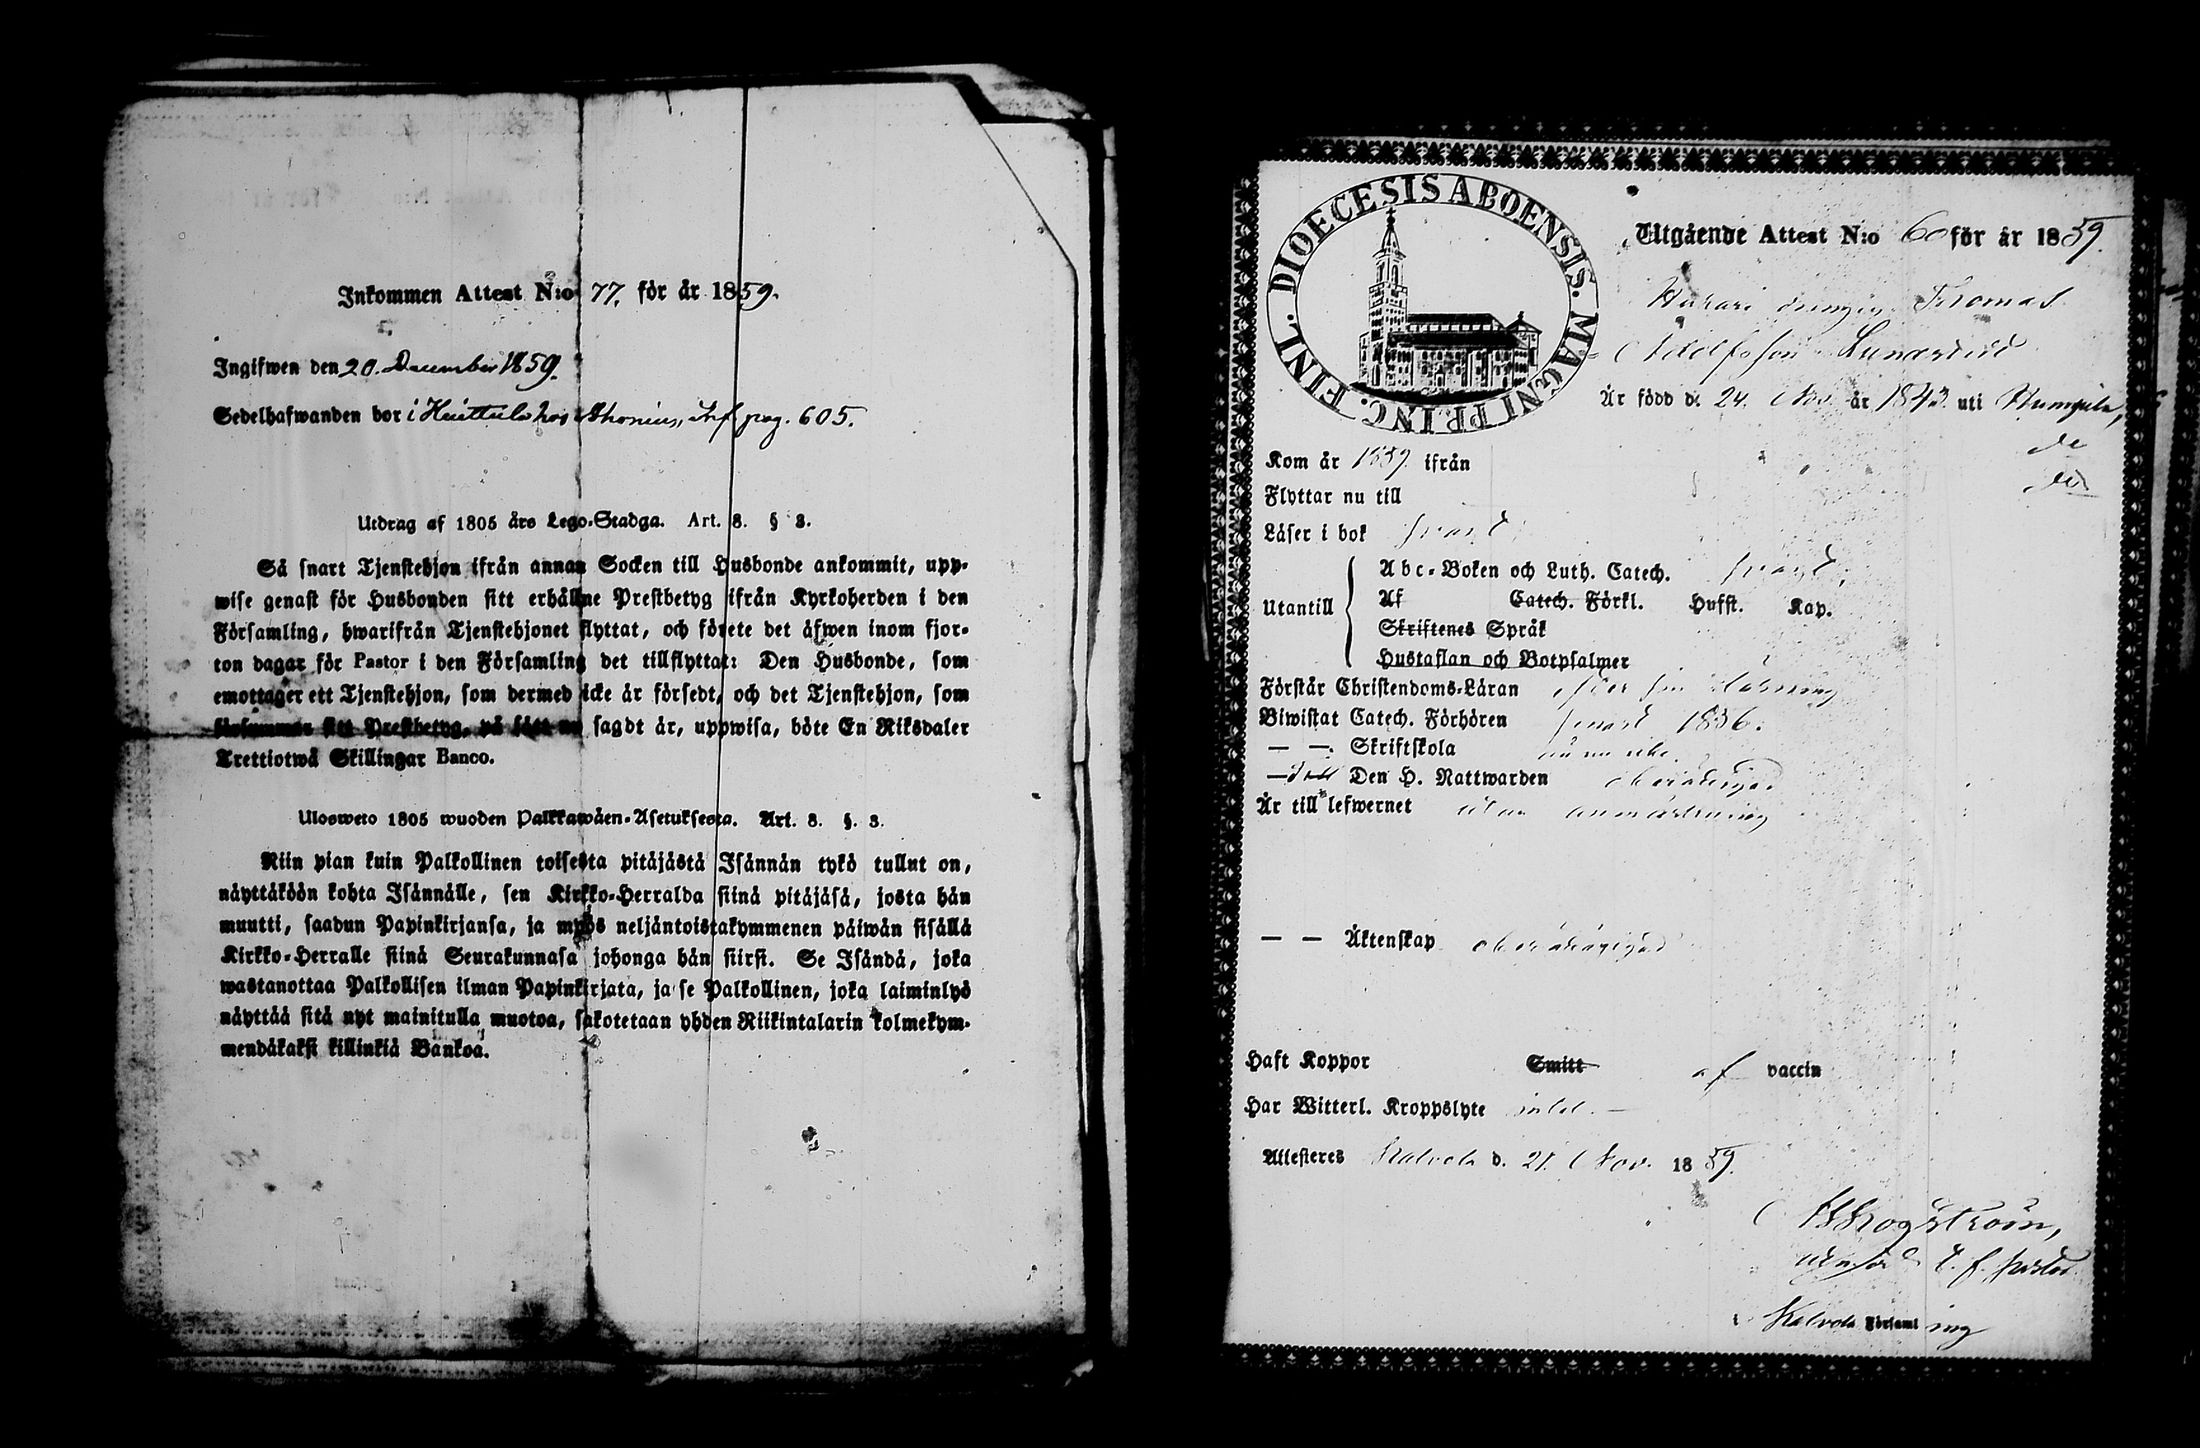 Inkommen Attest N:o 77. för år 1859.
Ingifwen den 20. December 1859.
Sedelhafwanden bor i Huittula hos pag. 605.
Utdrag af 1805 års Lego-Stadga. Art. 8. § 3.
Så snart Tjenstehjon ifrån annan Socken till Husbonde ankommit, upp-
wise genast för Husbonden sitt erhållne Prestbetyg ifrån Kyrkoherden i den
Församling, hwarifrån Tjenstehjonet flyttat, och förete det äfwen inom fjor-
ton dagar för Pastor i den Församling det tillflyttat: Den Husbonde, som
emottager ett Tjenstehjon, som dermed icke är försedt, och det Tjenstehjon, som
försummar sitt Prestbetyg, på sätt nu sagdt är, uppwisa, böte En Riksdaler
Trettiotwå Skillingar Banco.
Ulosweto 1805 wuoden Palkkawäen-Asetuksesta. Art. 8. §. 3.
Niin pian kuin Palkollinen toisesta pitäjästä Isännän tykö tullut on,
näyttäköön kohta Isännälle, sen Kirkko-Herralda siinä pitäjäsä, josta hän
muutti, saadun Papinkirjansa, ja myös neljäntoistakymmenen päiwän sisällä
Kirkko-Herralle siinä Seurakunnasa johonga hän siirsi. Se Isändä, joka
wastanottaa Palkollisen ilman Papinkirjata, ja se Palkollinen, joka laiminlyö
näyttää sitä nyt mainitulla muotoa, sakotetaan yhden Riikintalarin kolmekym-
mendäkaksi killinkiä Bankoa.
DIOECESIS ABOENSIS. MAGNI PRINC. FINL.
Utgående Attest N:o 60 för år 1859.
drengen Thomas
Adolfsson
Är född d. 24. Nov. år 1843. uti Humppila,
Kom år 1859 ifrån de
Flyttar nu till
Läser i bok svard
Utantill
Abc-Boken och Luth. Catech. svard.
Af Catech. Förkl. Hufst. Kap.
Skriftenes Språk
Hustaflan och Botpsalmer
Förstår Christendoms-Läran efter sin
Biwistat Catech. Förhören 1856.
— — Skriftskola ännu icke
— Den H. Nattwarden oberättigad
Är till lefwernet utan anmärkning
— — Äktenskap
Haft Koppor Smitt af vaccin
Har Witterl. Kroppslyte intet. —
Attesteres Kalvola d. 21. Nov. 1859.
Skogström,
v. f. Pastor
i Kalvola Församling